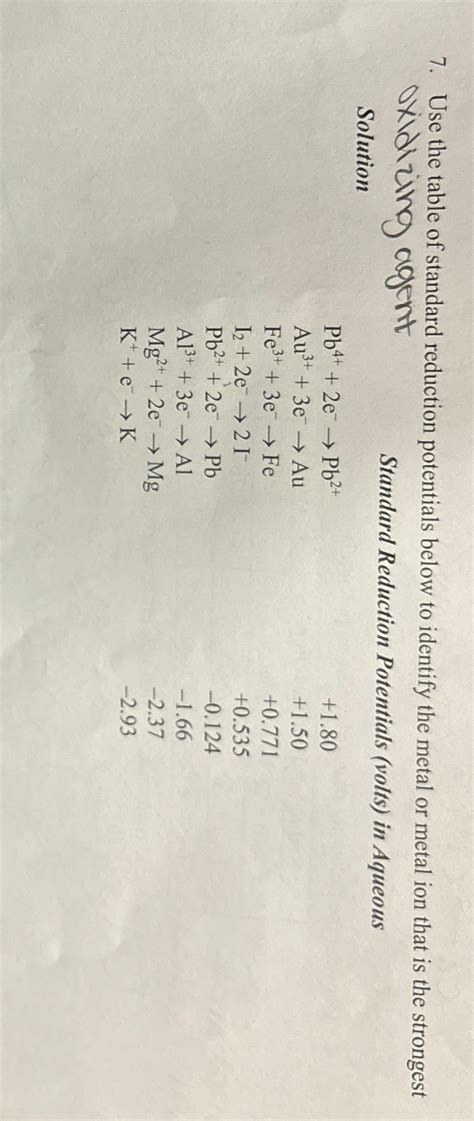 7. Use the table of standard reduction potentials below to identify the metal or metal ion that is the strongest
oxidizing agent
Standard Reduction Potentials (volts) in Aqueous
Solution
Pb⁴⁺ + 2e⁻ → Pb²⁺ +1.80
Au³⁺ + 3e⁻ → Au +1.50
Fe³⁺ + 3e⁻ → Fe +0.771
I₂ + 2e⁻ → 2 I⁻ +0.535
Pb²⁺ + 2e⁻ → Pb −0.124
Al³⁺ + 3e⁻ → Al −1.66
Mg²⁺ + 2e⁻ → Mg −2.37
K⁺ + e⁻ → K −2.93